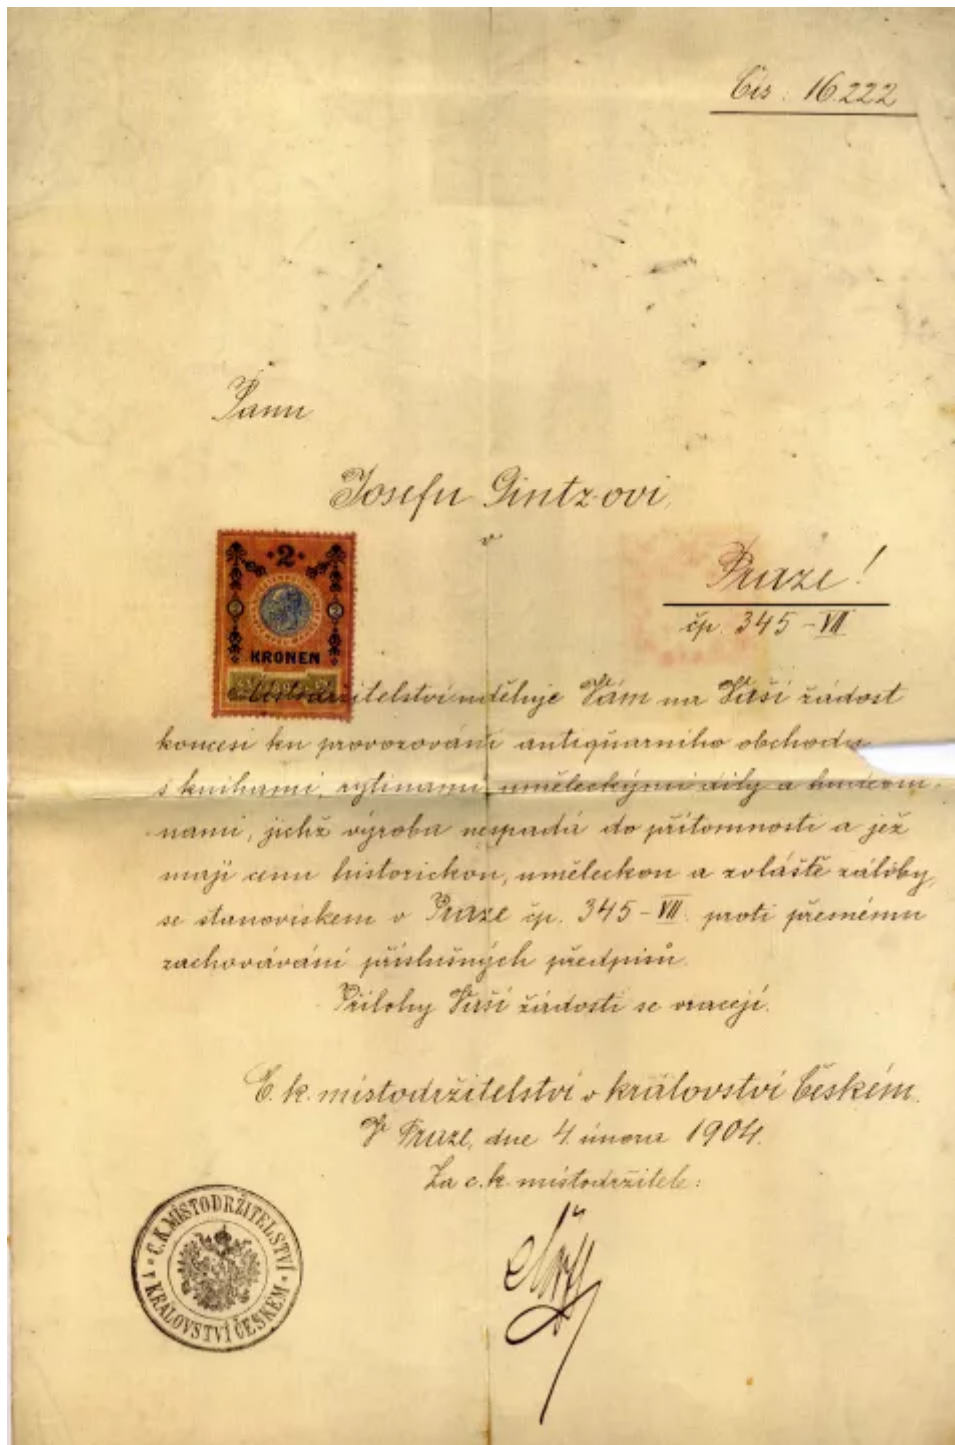 Čís: 16.222
Panu
Josefu Gintz-ovi,
v
Praze!
čp. 345-VII
2
2 2
KRONEN
Místodržitelství uděluje Vám na Vaši žádost
koncesi ku provozování antiquarního obchodu
s knihami, rytinami, uměleckými díly a hudeb
nami, jichž výroba nespadá do přítomnosti a jež
mají cenu historickou, uměleckou a zvláště záliby,
se stanoviskem v Praze čp. 345-VII. proti přesnému
zachovávání příslušných předpisů.
Přílohy Vaší žádosti se vracejí.
C. k. místodržitelství v království Českém.
V Praze, dne 4. února 1904.
Za c. k. místodržitele:
C.K. MÍSTODRŽITELSTVÍ
V KRÁLOVSTVÍ ČESKÉM